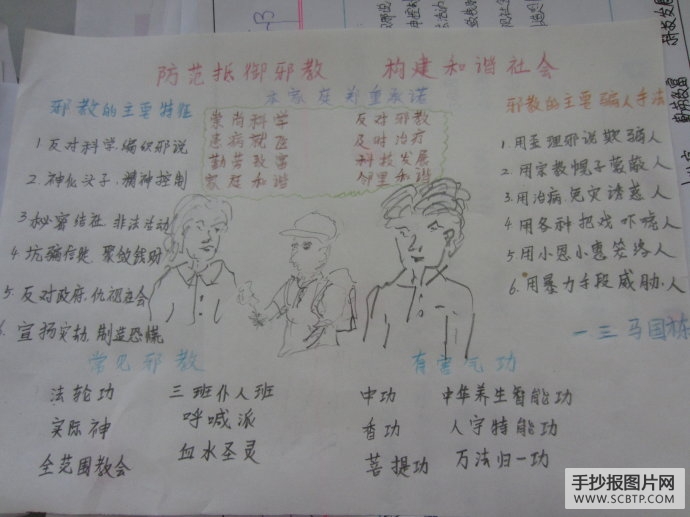 防范抵御邪教 构建和谐社会
本家庭郑重承诺
崇尚科学 反对邪教
患病就医 及时治疗
勤劳致富 科技发展
家庭和谐 邻里和谐
邪教的主要特征
1 反对科学、编织邪说
2. 神化头子、精神控制
3 秘密结社、非法活动
4. 坑骗信徒、聚敛钱财
5. 反对政府、仇视社会
6. 宣扬灾劫、制造恐慌
邪教的主要骗人手法
1. 用歪理邪说欺骗人
2. 用宗教幌子蒙蔽人
3. 用治病免灾诱惑人
4 用各种把戏吓唬人
5 用小恩小惠笼络人
6. 用暴力手段威胁人
一三马国栋
常见邪教
法轮功 三班仆人班
实际神 呼喊派
全范围教会 血水圣灵
有害气功
中功 中华养生智能功
香功 人宇特能功
菩提功 万法归一功
手抄报图片网
WWW.SCBTP.COM